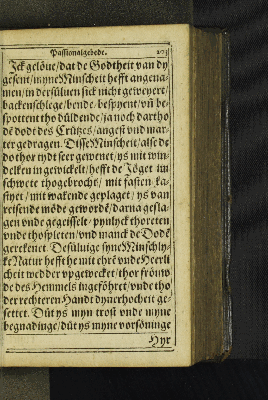 Passionalgebede.
Jck gelöue / dat de Godtheit van dy
gesent / myne Minscheit hefft angena-
men / in dersüluen sick nicht geweyert /
backenschlege / bende / bespyent / vn̄ be-
spottent tho düldende / ja noch dartho
dē dodt des Crützes / angest vnd mar-
ter gedragen. Disse Minscheit / alse de
do thor tydt seer gewenet / ys mit win-
delken in gewickelt / hefft de Jöget im
schwete thogebrocht / mit fasten ka-
styet / mit wakende geplaget / ys van
reisende möde gewordē / darna gesla-
gen vnde gegeisselt / pynlyck thoreten
vnde thospleten / vnd manck de Dodē
gerekenet. Desüluige syne Minschly-
ke Natur hefft he mit ehrē vnde Heerli
cheit wedder vpgewecket / thor fröuw
de des Hemmels ingeföhret / vnde tho
der rechteren Handt dyner hocheit ge-
settet. Düt ys myn trost vnde myne
begnadinge / düt ys myne vorsöninge
Hyr